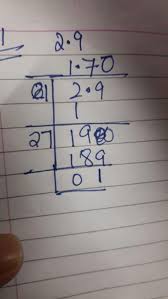 1
2.9
1.70
21 2.9
1
27 190
189
01